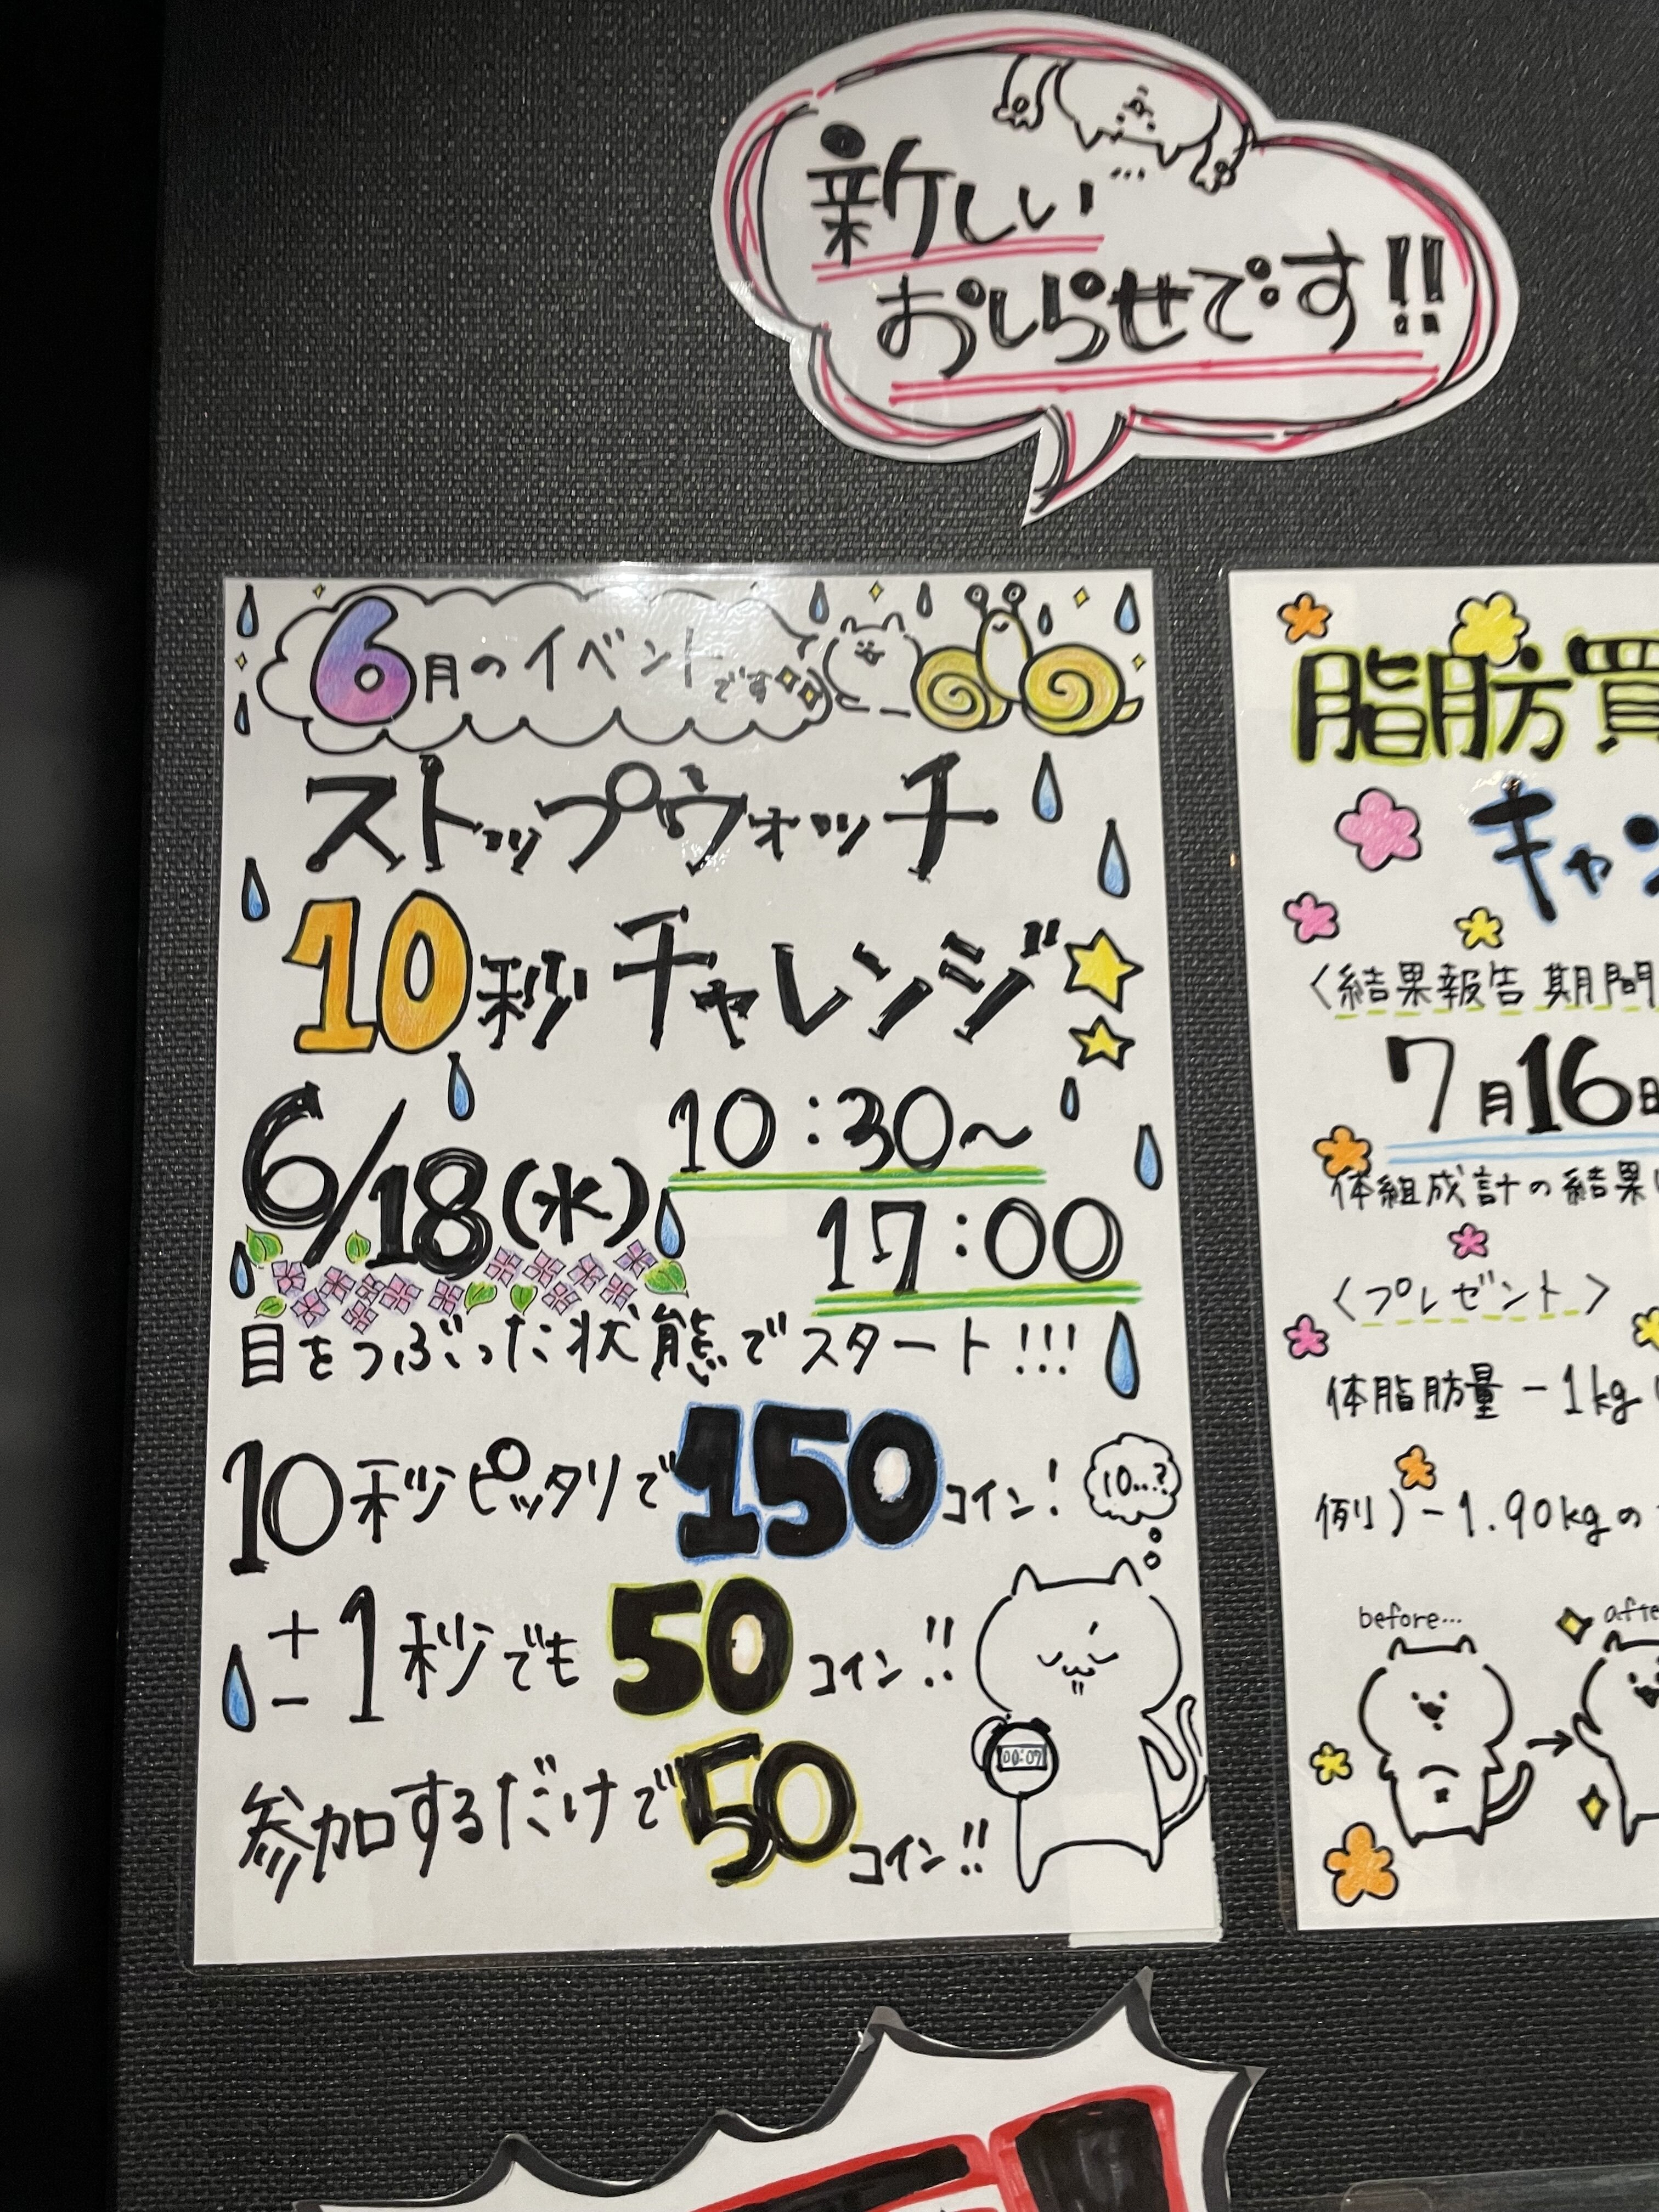 新しい…
おしらせです!!
6月のイベントです
ストップウォッチ
10秒チャレンジ
6/18(水) 10:30〜
17:00
目をつぶった状態でスタート!!!
10秒ピッタリで150コイン!
10...?
±1秒でも50コイン!!
00:07
参加するだけで50コイン!!
脂肪買
キャン
〈結果報告期間
7月16日
体組成計の結果
〈プレゼント〉
体脂肪量-1kg
例)-1.90kgの
before...
afte